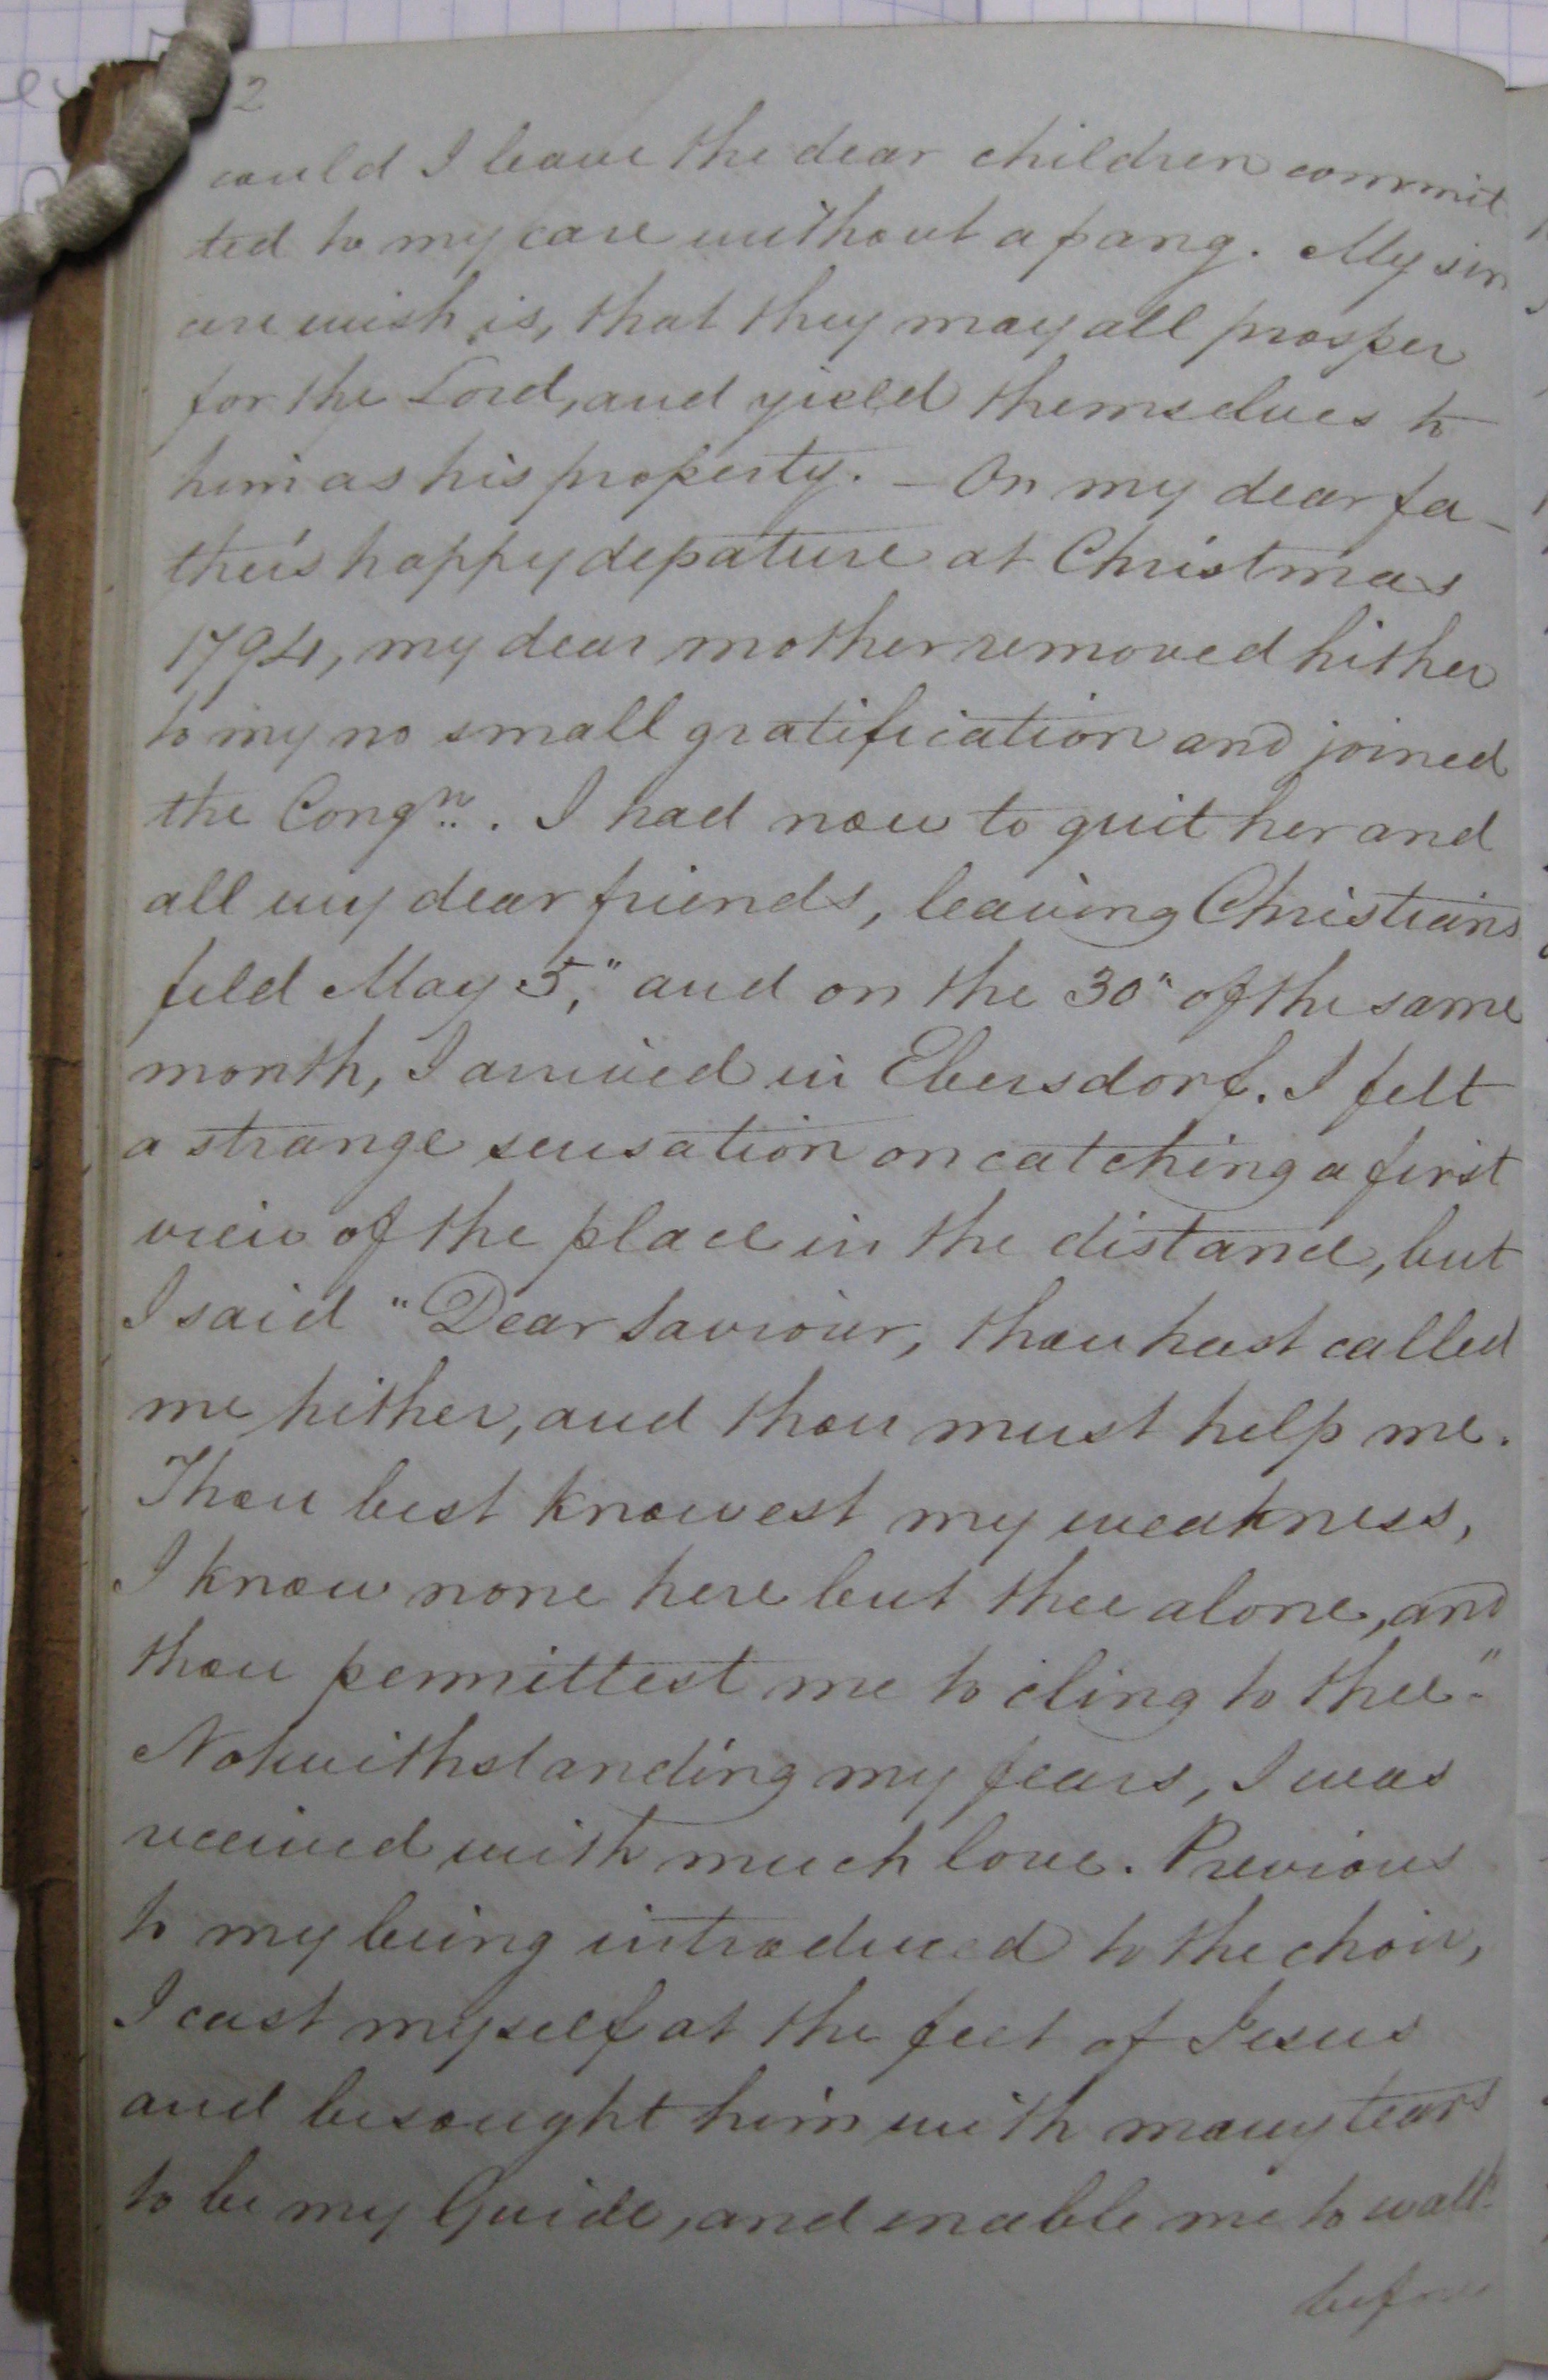 2
could I leave the dear children commit
ted to my care without a pang. My sin
cere wish is, that they may all prosper
for the Lord, and yield themselves to
him as his property. – On my dear fa-
ther's happy depature at Christmas
1794, my dear mother removed hither
to my no small gratification and joined
the Congn. . I had now to quit her and
all my dear friends, leaving Christians
feld May 5," and on the 30" of the same
month, I arrived in Ebersdorf. I felt
a strange sensation on catching a first
view of the place in the distance, but
I said "Dear Saviour, thou hast called
me hither, and thou must help me.
Thou best knowest my weakness,
I know none here but thee alone, and
thou permittest me to cling to thee."
Notwithstanding my fears, I was
received with much love. Previous
to my being introduced to the choir,
I cast myself at the feet of Jesus
and besought him with many tears
to be my Guide, and enable me to walk
before